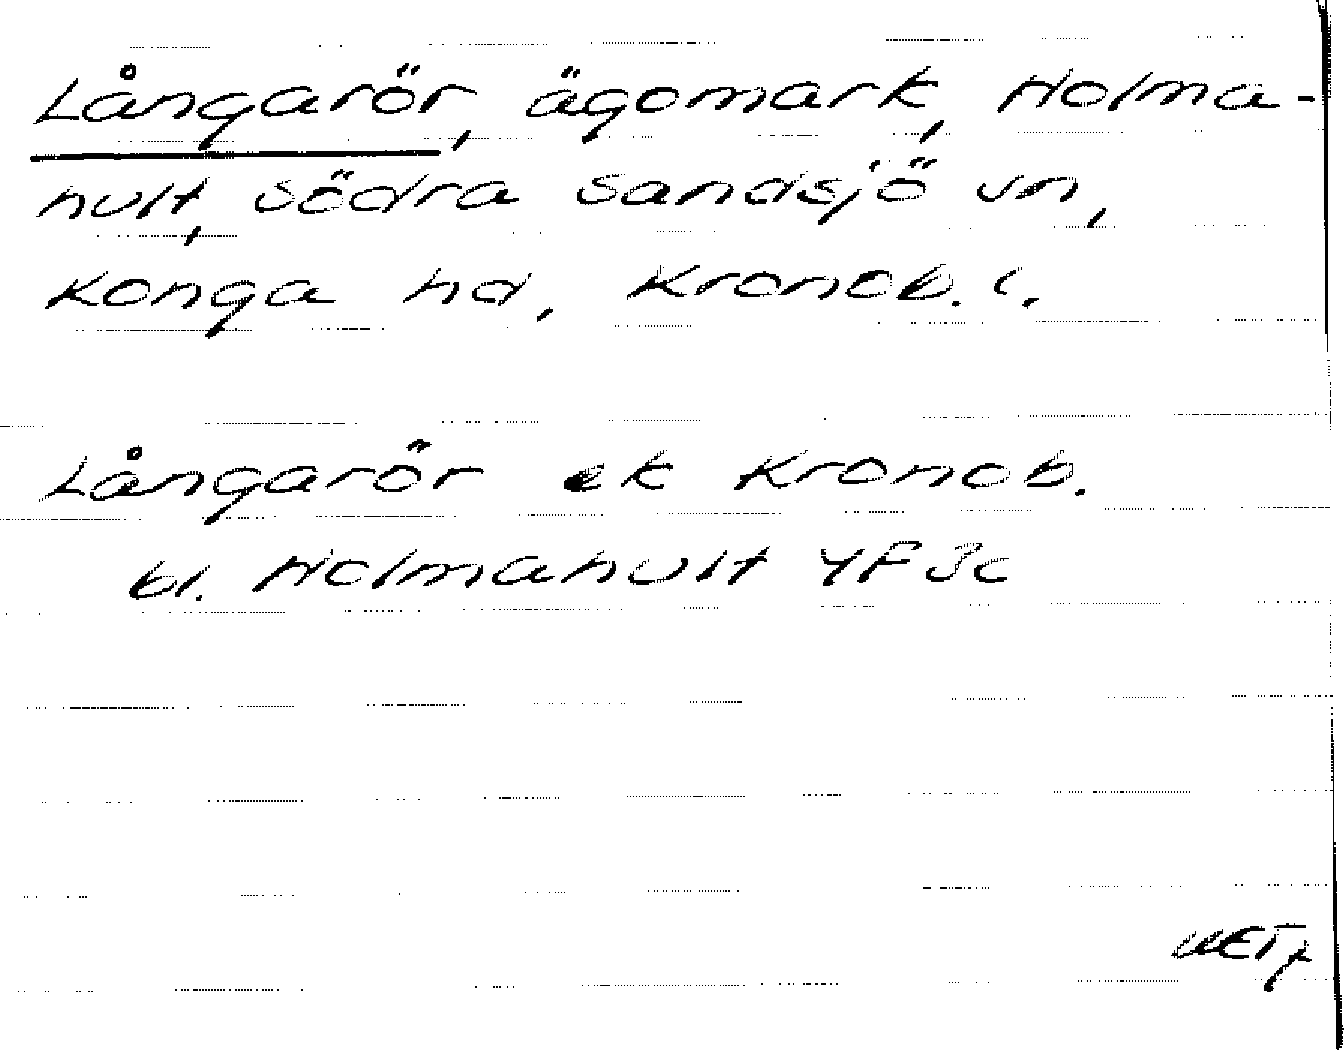 Långarör, ägomark, Holma-
hult, Södra Sandsjö sn,
Konga hd, Kronob. l.
Långarör ek Kronob.
bl. Holmahult 4F3c